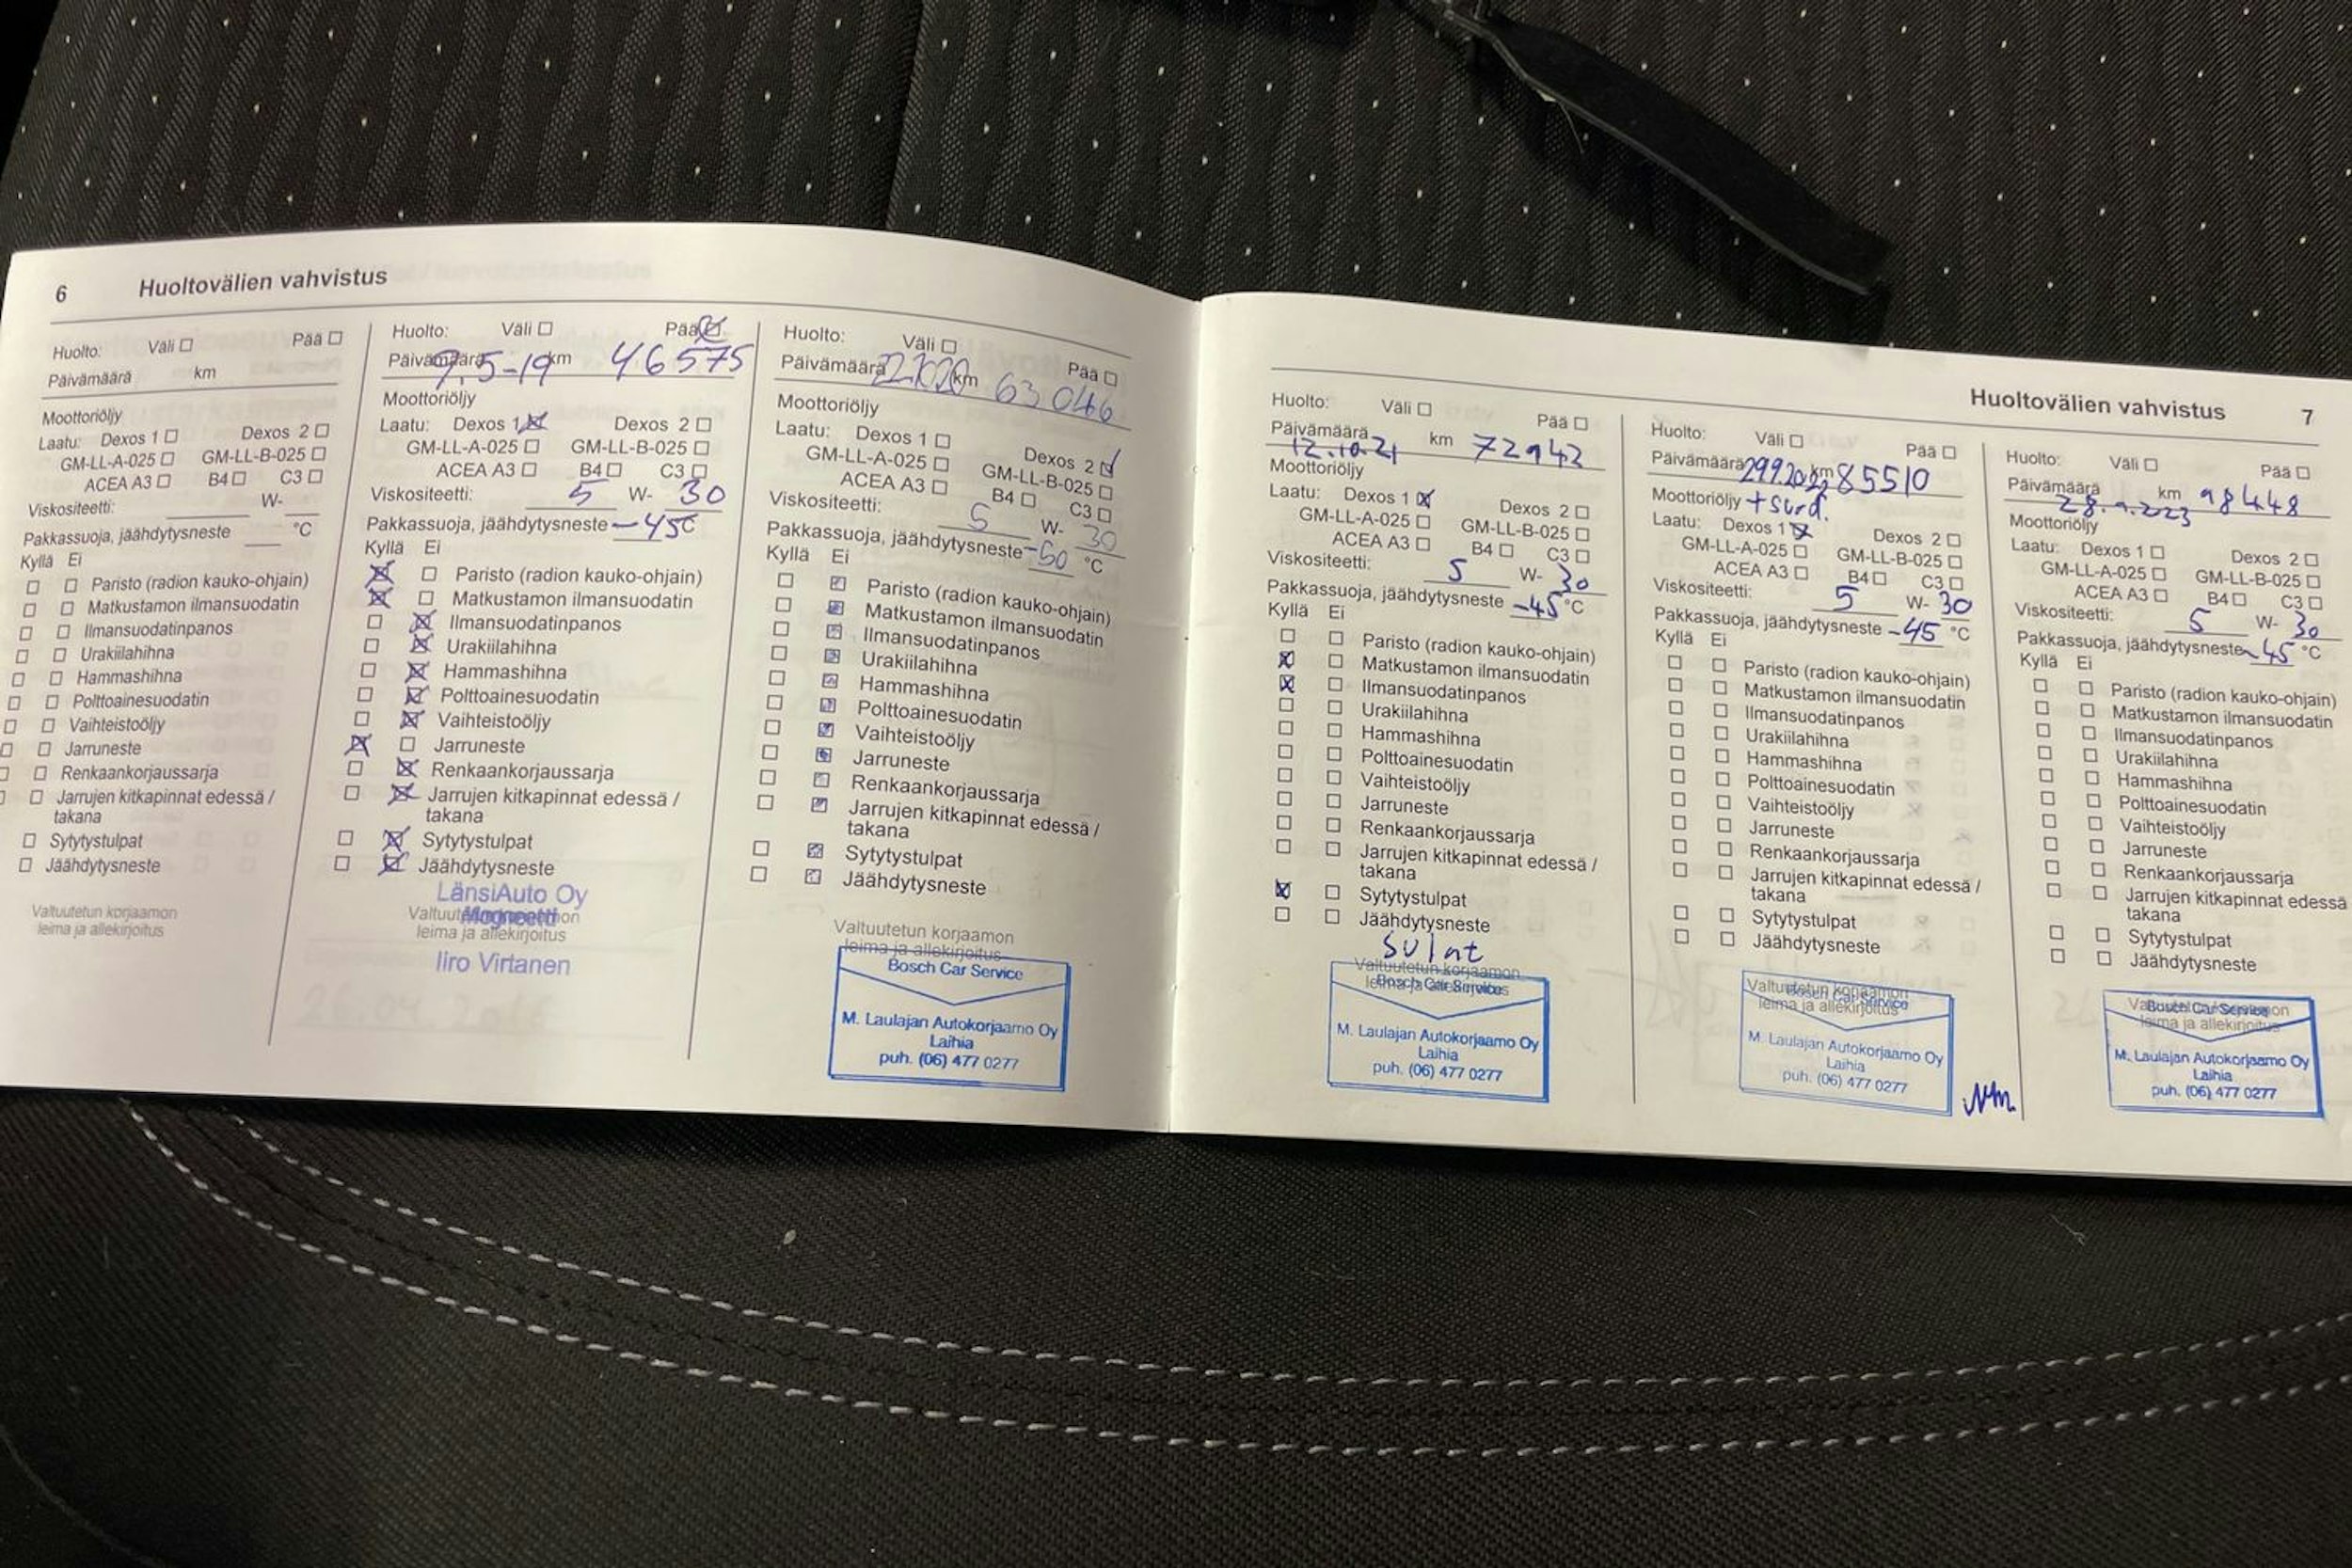 6 Huoltovälien vahvistus
Huolto: Väli ☐ Pää ☐
Päivämäärä km
Moottoriöljy
Laatu: Dexos 1 ☐ Dexos 2 ☐
GM-LL-A-025 ☐ GM-LL-B-025 ☐
ACEA A3 ☐ B4 ☐ C3 ☐
Viskositeetti: W-
Pakkassuoja, jäähdytysneste °C
Kyllä Ei
☐ ☐ Paristo (radion kauko-ohjain)
☐ ☐ Matkustamon ilmansuodatin
☐ ☐ Ilmansuodatinpanos
☐ ☐ Urakiilahihna
☐ ☐ Hammashihna
☐ ☐ Polttoainesuodatin
☐ ☐ Vaihteistoöljy
☐ ☐ Jarruneste
☐ ☐ Renkaankorjaussarja
☐ ☐ Jarrujen kitkapinnat edessä /
takana
☐ Sytytystulpat
☐ Jäähdytysneste
Valtuutetun korjaamon
leima ja allekirjoitus
Huolto: Väli ☐ Pää ☒
Päivämäärä 9.5-19 km 46575
Moottoriöljy
Laatu: Dexos 1 ☒ Dexos 2 ☐
GM-LL-A-025 ☐ GM-LL-B-025 ☐
ACEA A3 ☐ B4 ☐ C3 ☐
Viskositeetti: 5 W- 30
Pakkassuoja, jäähdytysneste -45 C
Kyllä Ei
☒ ☐ Paristo (radion kauko-ohjain)
☒ ☐ Matkustamon ilmansuodatin
☐ ☒ Ilmansuodatinpanos
☐ ☒ Urakiilahihna
☐ ☒ Hammashihna
☐ ☒ Polttoainesuodatin
☐ ☒ Vaihteistoöljy
☒ ☐ Jarruneste
☐ ☒ Renkaankorjaussarja
☐ ☒ Jarrujen kitkapinnat edessä /
takana
☐ ☒ Sytytystulpat
☐ ☒ Jäähdytysneste
LänsiAuto Oy
Valtuutetun korjaamon
leima ja allekirjoitus
Iiro Virtanen
Huolto: Väli ☐ Pää ☐
Päivämäärä km 63 046
Moottoriöljy
Laatu: Dexos 1 ☐ Dexos 2 ☑
GM-LL-A-025 ☐ GM-LL-B-025 ☐
ACEA A3 ☐ B4 ☐ C3 ☐
Viskositeetti: 5 W- 30
Pakkassuoja, jäähdytysneste °C
Kyllä Ei
☐ ☑ Paristo (radion kauko-ohjain)
☐ ☑ Matkustamon ilmansuodatin
☐ ☑ Ilmansuodatinpanos
☐ ☑ Urakiilahihna
☐ ☑ Hammashihna
☐ ☑ Polttoainesuodatin
☐ ☑ Vaihteistoöljy
☐ ☑ Jarruneste
☐ ☑ Renkaankorjaussarja
☐ ☑ Jarrujen kitkapinnat edessä /
takana
☐ ☑ Sytytystulpat
☐ ☑ Jäähdytysneste
Valtuutetun korjaamon
leima ja allekirjoitus
Bosch Car Service
M. Laulajan Autokorjaamo Oy
Laihia
puh. (06) 477 0277
Huoltovälien vahvistus 7
Huolto: Väli ☐ Pää ☐
Päivämäärä 12.10.21 km 72942
Moottoriöljy
Laatu: Dexos 1 ☒ Dexos 2 ☐
GM-LL-A-025 ☐ GM-LL-B-025 ☐
ACEA A3 ☐ B4 ☐ C3 ☐
Viskositeetti: 5 W- 30
Pakkassuoja, jäähdytysneste -45 °C
Kyllä Ei
☐ ☐ Paristo (radion kauko-ohjain)
☒ ☐ Matkustamon ilmansuodatin
☒ ☐ Ilmansuodatinpanos
☐ ☐ Urakiilahihna
☐ ☐ Hammashihna
☐ ☐ Polttoainesuodatin
☐ ☐ Vaihteistoöljy
☐ ☐ Jarruneste
☐ ☐ Renkaankorjaussarja
☐ ☐ Jarrujen kitkapinnat edessä /
takana
☒ ☐ Sytytystulpat
☐ ☐ Jäähdytysneste
Valtuutetun korjaamon
leima ja allekirjoitus
Bosch Car Service
M. Laulajan Autokorjaamo Oy
Laihia
puh. (06) 477 0277
Huolto: Väli ☐ Pää ☐
Päivämäärä 29.9.2022 km 85510
Moottoriöljy + suod.
Laatu: Dexos 1 ☒ Dexos 2 ☐
GM-LL-A-025 ☐ GM-LL-B-025 ☐
ACEA A3 ☐ B4 ☐ C3 ☐
Viskositeetti: 5 W- 30
Pakkassuoja, jäähdytysneste -45 °C
Kyllä Ei
☐ ☐ Paristo (radion kauko-ohjain)
☐ ☐ Matkustamon ilmansuodatin
☐ ☐ Ilmansuodatinpanos
☐ ☐ Urakiilahihna
☐ ☐ Hammashihna
☐ ☐ Polttoainesuodatin
☐ ☐ Vaihteistoöljy
☐ ☐ Jarruneste
☐ ☐ Renkaankorjaussarja
☐ ☐ Jarrujen kitkapinnat edessä /
takana
☐ ☐ Sytytystulpat
☐ ☐ Jäähdytysneste
Valtuutetun korjaamon
leima ja allekirjoitus
Bosch Car Service
M. Laulajan Autokorjaamo Oy
Laihia
puh. (06) 477 0277
Huolto: Väli ☐ Pää ☐
Päivämäärä 28.9.2023 km 98448
Moottoriöljy
Laatu: Dexos 1 ☐ Dexos 2 ☐
GM-LL-A-025 ☐ GM-LL-B-025 ☐
ACEA A3 ☐ B4 ☐ C3 ☐
Viskositeetti: 5 W- 30
Pakkassuoja, jäähdytysneste -45 °C
Kyllä Ei
☐ ☐ Paristo (radion kauko-ohjain)
☐ ☐ Matkustamon ilmansuodatin
☐ ☐ Ilmansuodatinpanos
☐ ☐ Urakiilahihna
☐ ☐ Hammashihna
☐ ☐ Polttoainesuodatin
☐ ☐ Vaihteistoöljy
☐ ☐ Jarruneste
☐ ☐ Renkaankorjaussarja
☐ ☐ Jarrujen kitkapinnat edessä
takana
☐ ☐ Sytytystulpat
☐ ☐ Jäähdytysneste
Valtuutetun korjaamon
leima ja allekirjoitus
Bosch Car Service
M. Laulajan Autokorjaamo Oy
Laihia
puh. (06) 477 0277